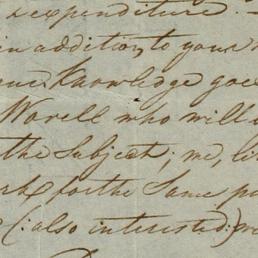 expenditure.
in addition, to your
Knowledge goe
Worell who will
the Subject; me,
for the Same
(: also interested:)